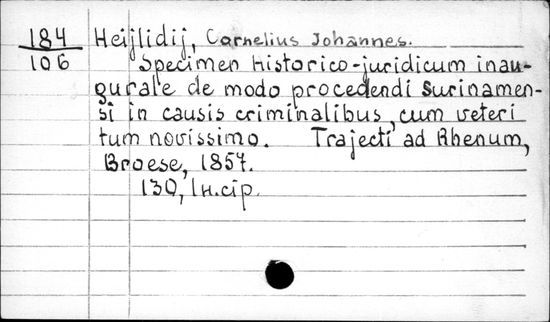 184
106
Heijlidij, Cornelius Johannes.
Specimen historico-juridicum inau-
gurale de modo procedendi Surinamen-
si in causis criminalibus, cum veteri
tum novissimo. Trajecti ad Rhenum,
Broese, 1857.
130, 1н.cip.